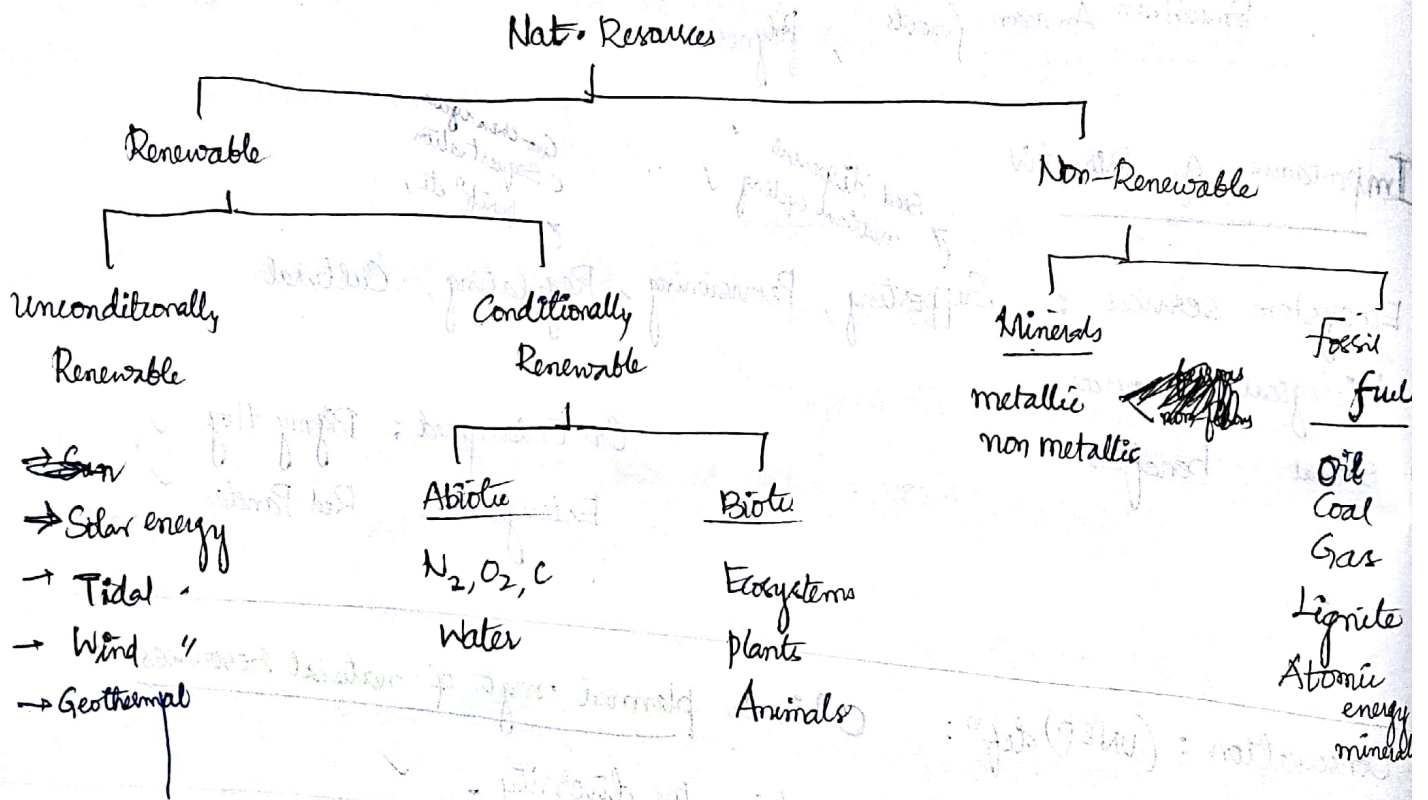 Nat. Resources
Renewable
Non-Renewable
Unconditionally
Renewable
Conditionally
Renewable
Minerals
metallic
non metallic
Fossil
fuel
→ Sun
→ Solar energy
→ Tidal "
→ Wind "
→ Geothermal
Abiotic
N₂, O₂, C
Water
Biotic
Ecosystems
plants
Animals
Oil
Coal
Gas
Lignite
Atomic
energy
mineral